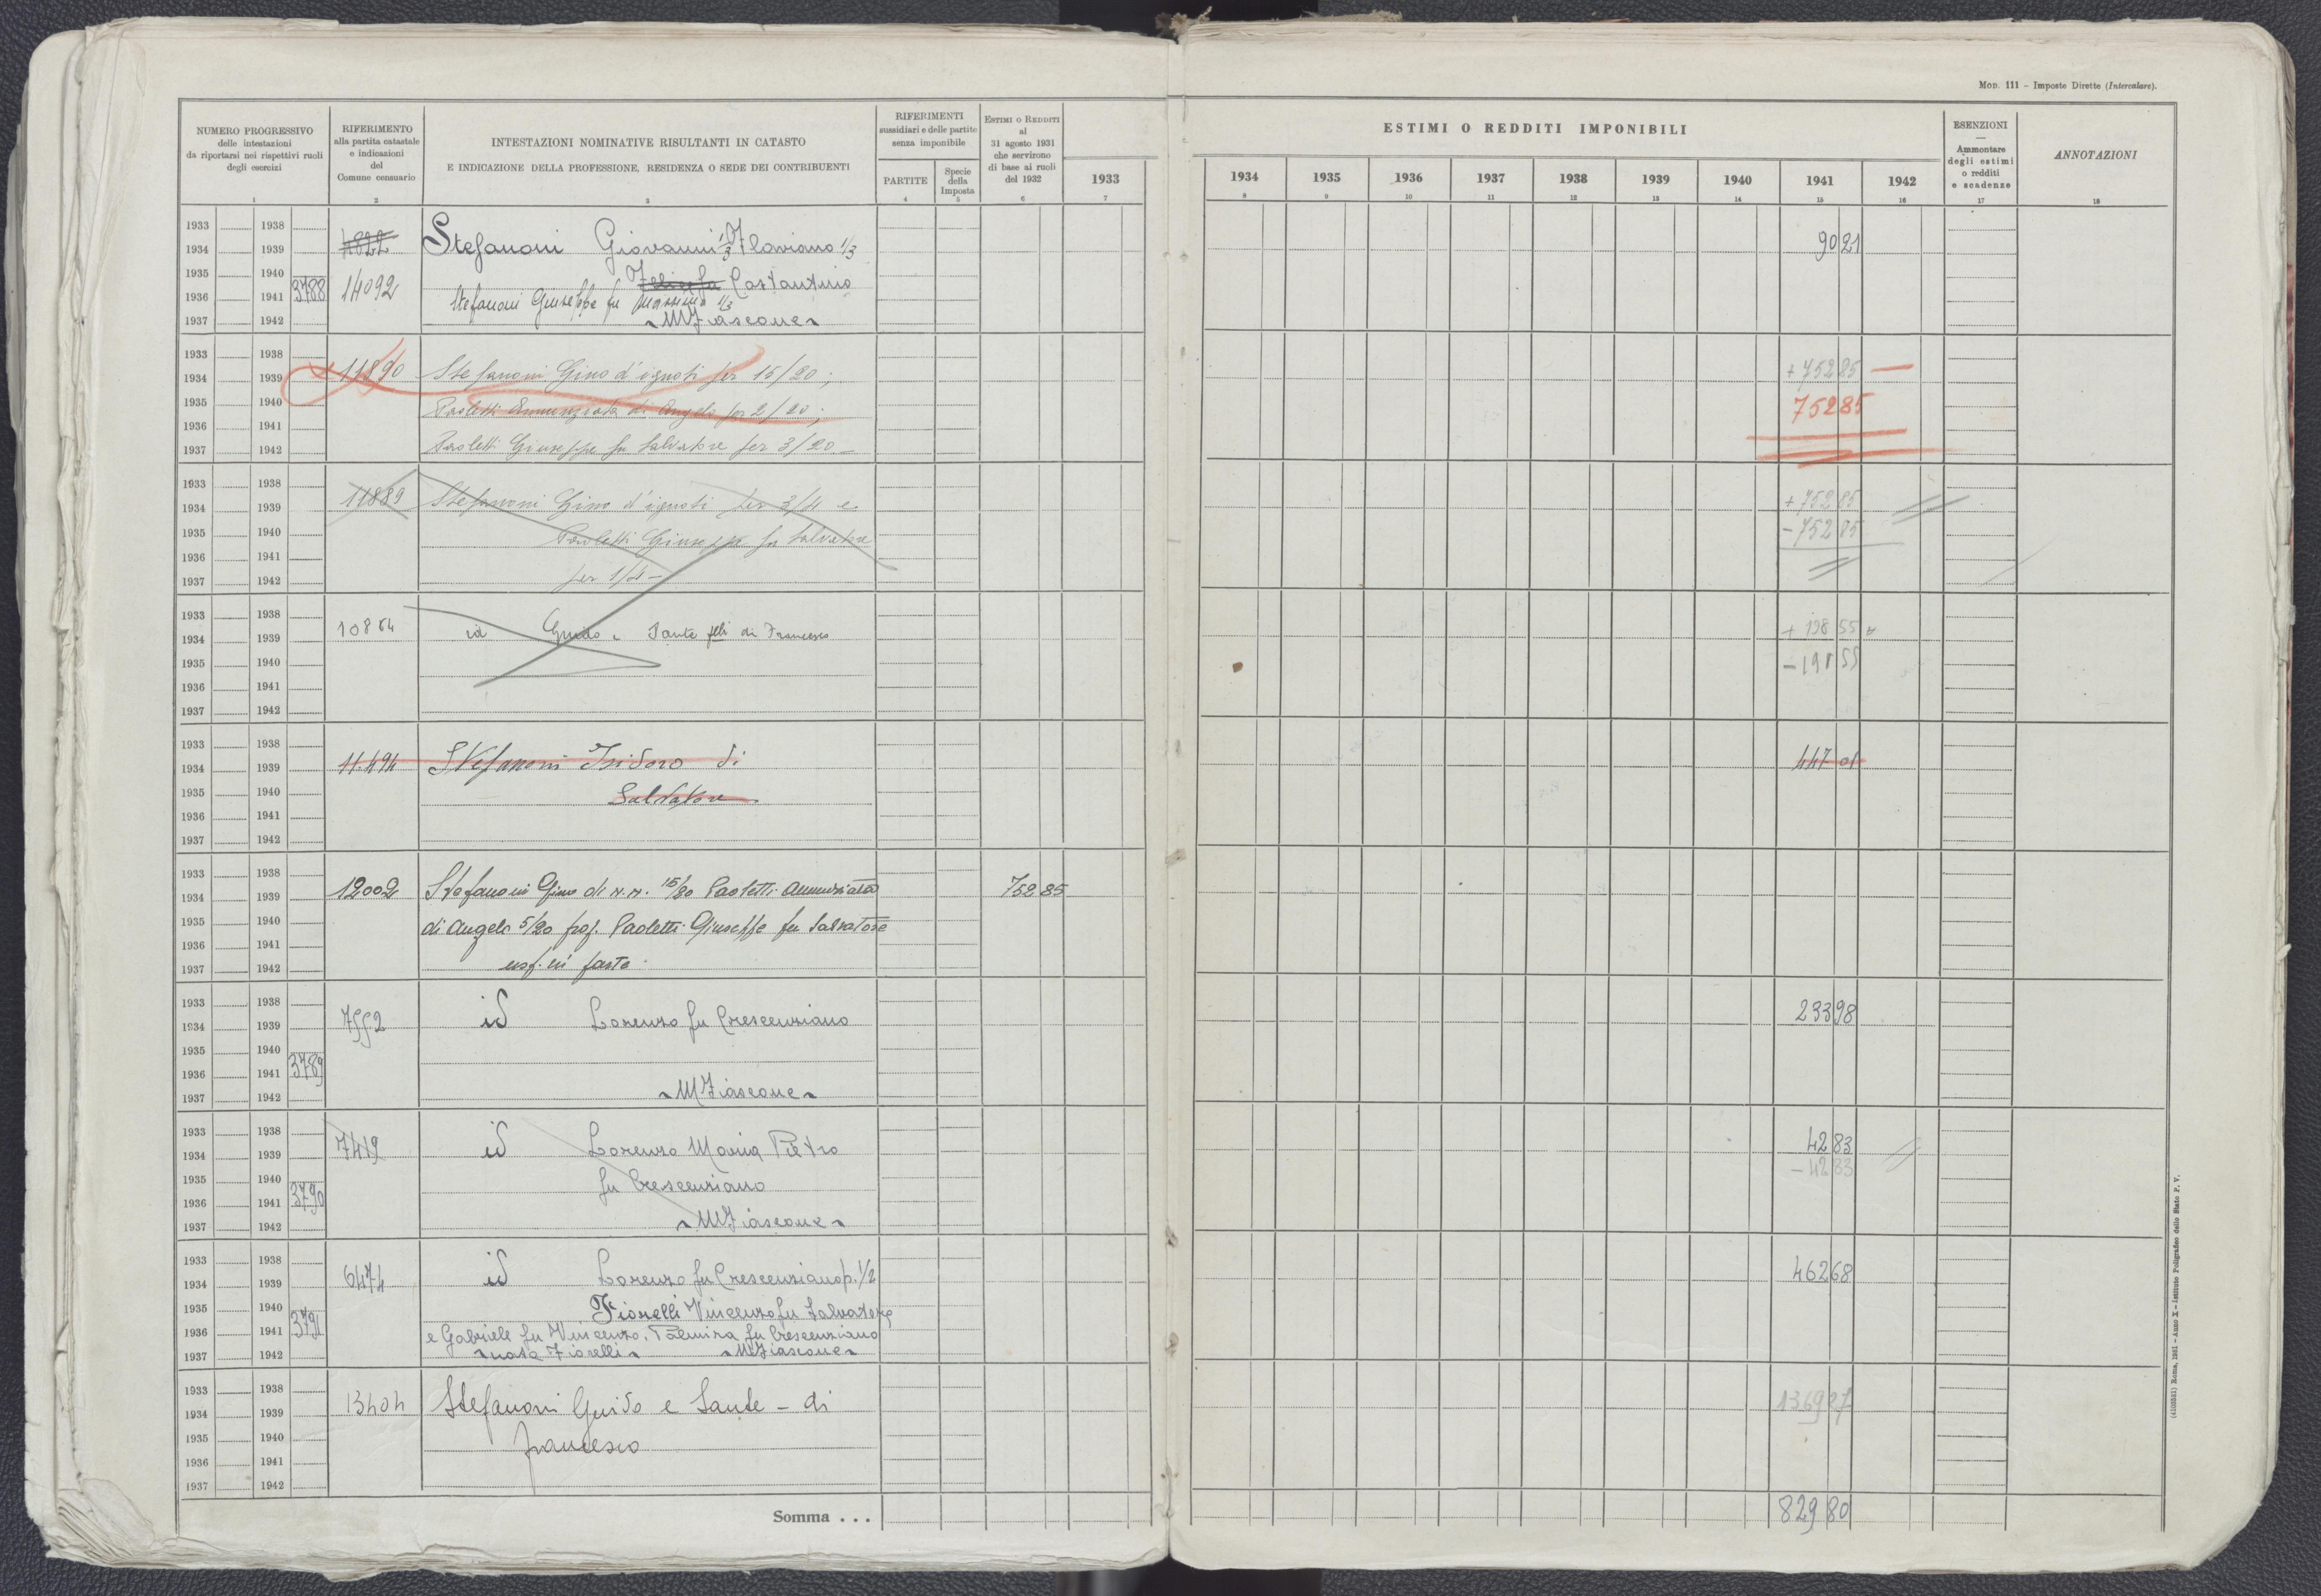 Mod. 111 – Imposte Dirette (Intercalare).
NUMERO PROGRESSIVO
delle intestazioni
da riportarsi nei rispettivi ruoli
degli esercizi
1
RIFERIMENTO
alla partita catastale
e indicazioni
del
Comune censuario
2
INTESTAZIONI NOMINATIVE RISULTANTI IN CATASTO
E INDICAZIONE DELLA PROFESSIONE, RESIDENZA O SEDE DEI CONTRIBUENTI
3
RIFERIMENTI
sussidiari e delle partite
senza imponibile
PARTITE
4
Specie
della
Imposta
5
ESTIMI O REDDITI
al
31 agosto 1931
che servirono
di base ai ruoli
del 1932
6
ESTIMI O REDDITI IMPONIBILI
1933 1934 1935 1936 1937 1938 1939 1940 1941 1942
7 8 9 10 11 12 13 14 15 16
ESENZIONI
—
Ammontare
degli estimi
o redditi
e scadenze
17
ANNOTAZIONI
18
1933 1938
1934 1939 4822 Stefanoni Giovanni 1/3 Flaviano 1/3 90 21
1935 1940 Costantino
1936 1941 3788 14092 Stefanoni Giuseppe fu Massimo 1/3
1937 1942 M Fiascone
1933 1938
1934 1939 11890 Stefanoni Gino d'ignoti per 15/20; + 752 85
1935 1940 Paoletti Annunziata di Angelo per 2/20; 752 85
1936 1941
1937 1942 Paoletti Giuseppe fu Salvatore per 3/20
1933 1938
1934 1939 11889 Stefanoni Gino d'ignoti per 3/4 e + 752 85
1935 1940 Paoletti Giuseppe fu Salvatore – 752 85
1936 1941
1937 1942 per 1/4 –
1933 1938
1934 1939 10864 id Guido e Sante flli di Francesco + 198 55
1935 1940 – 198 55
1936 1941
1937 1942
1933 1938
1934 1939 11.494 Stefanoni Isidoro di 447 01
1935 1940 Salvatore
1936 1941
1937 1942
1933 1938
1934 1939 12002 Stefanoni Gino di n.n. 15/20 Paoletti Annunziata 752 85
1935 1940 di Angelo 5/20 prop. Paoletti Giuseppe fu Salvatore
1936 1941
1937 1942 usf. in parte
1933 1938
1934 1939 7552 id Lorenzo fu Crescenziano 233 98
1935 1940
1936 1941 3789
1937 1942 M Fiascone
1933 1938
1934 1939 7419 id Lorenzo Maria Pietro 42 83
1935 1940 fu Crescenziano – 42 83
1936 1941 3790
1937 1942 M Fiascone
1933 1938
1934 1939 6474 id Lorenzo fu Crescenziano p. 1/2 462 68
1935 1940 Fiorelli Vincenzo fu Salvatore
1936 1941 3791 e Gabriele fu Vincenzo, Palmira fu Crescenziano
1937 1942 nata Fiorelli M Fiascone
1933 1938
1934 1939 13404 Stefanoni Guido e Sante – di 1369 27
1935 1940 Francesco
1936 1941
1937 1942
Somma . . . 829 80
(4103531) Roma, 1931 – Anno X – Istituto Poligrafico dello Stato P. V.